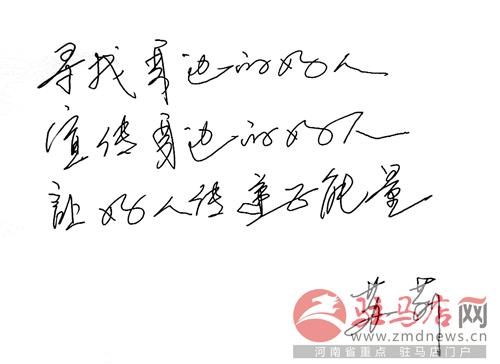 寻找身边的好人
宣传身边的好人
让好人传递正能量
驻马店网
www.zmdnews.cn
河南省重点 驻马店门户